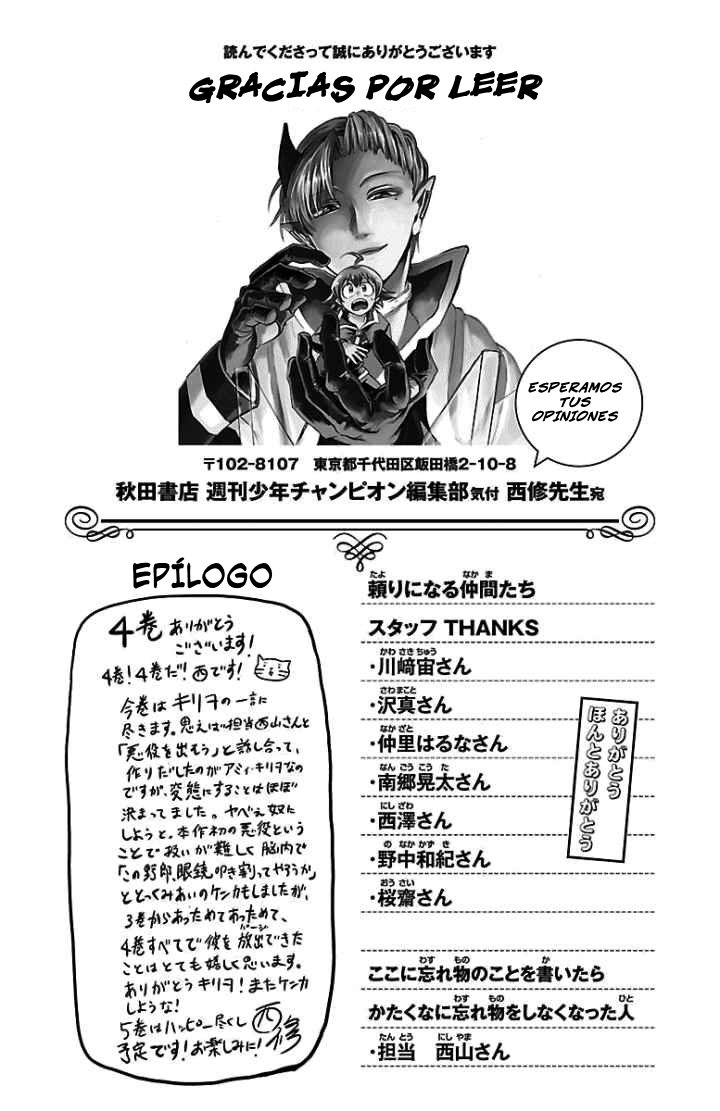 読んでくださって誠にありがとうございます
GRACIAS POR LEER
ESPERAMOS
TUS
OPINIONES
〒102-8107　東京都千代田区飯田橋2-10-8
秋田書店 週刊少年チャンピオン編集部気付 西修先生宛
EPÍLOGO
4巻ありがとう
ございます!
4巻!4巻だ!西です!
今巻はキリヲの一言に
尽きます。思えば担当西山さんと
「悪役を出もう」と話し合って、
作りだしたのがアミィ・キリヲなの
ですが、変態にすることはほぼ
決まってました。ヤベぇ奴に
しようと。本作初の悪役という
ことで扱いが難しく脳内で
「この野郎、眼鏡叩き割ってやろうか」
ととっくみあいのケンカもしましたが、
3巻からあっためてあっためて、
4巻すべてで彼を放出できた
パージ
ことはとても嬉しく思います。
ありがとうキリヲ!またケンカ
しような!
5巻はハッピー尽くし
予定です!お楽しみに!
西修
たよ なかま
頼りになる仲間たち
スタッフ THANKS
かわさきちゅう
・川﨑宙さん
さわまこと
・沢真さん
なかざと
・仲里はるなさん
なんごうこうた
・南郷晃太さん
にしざわ
・西澤さん
のなかかずき
・野中和紀さん
おうさい
・桜齋さん
ありがとう
ほんとありがとう
わす もの か
ここに忘れ物のことを書いたら
わす もの ひと
かたくなに忘れ物をしなくなった人
たんとう にしやま
・担当　西山さん